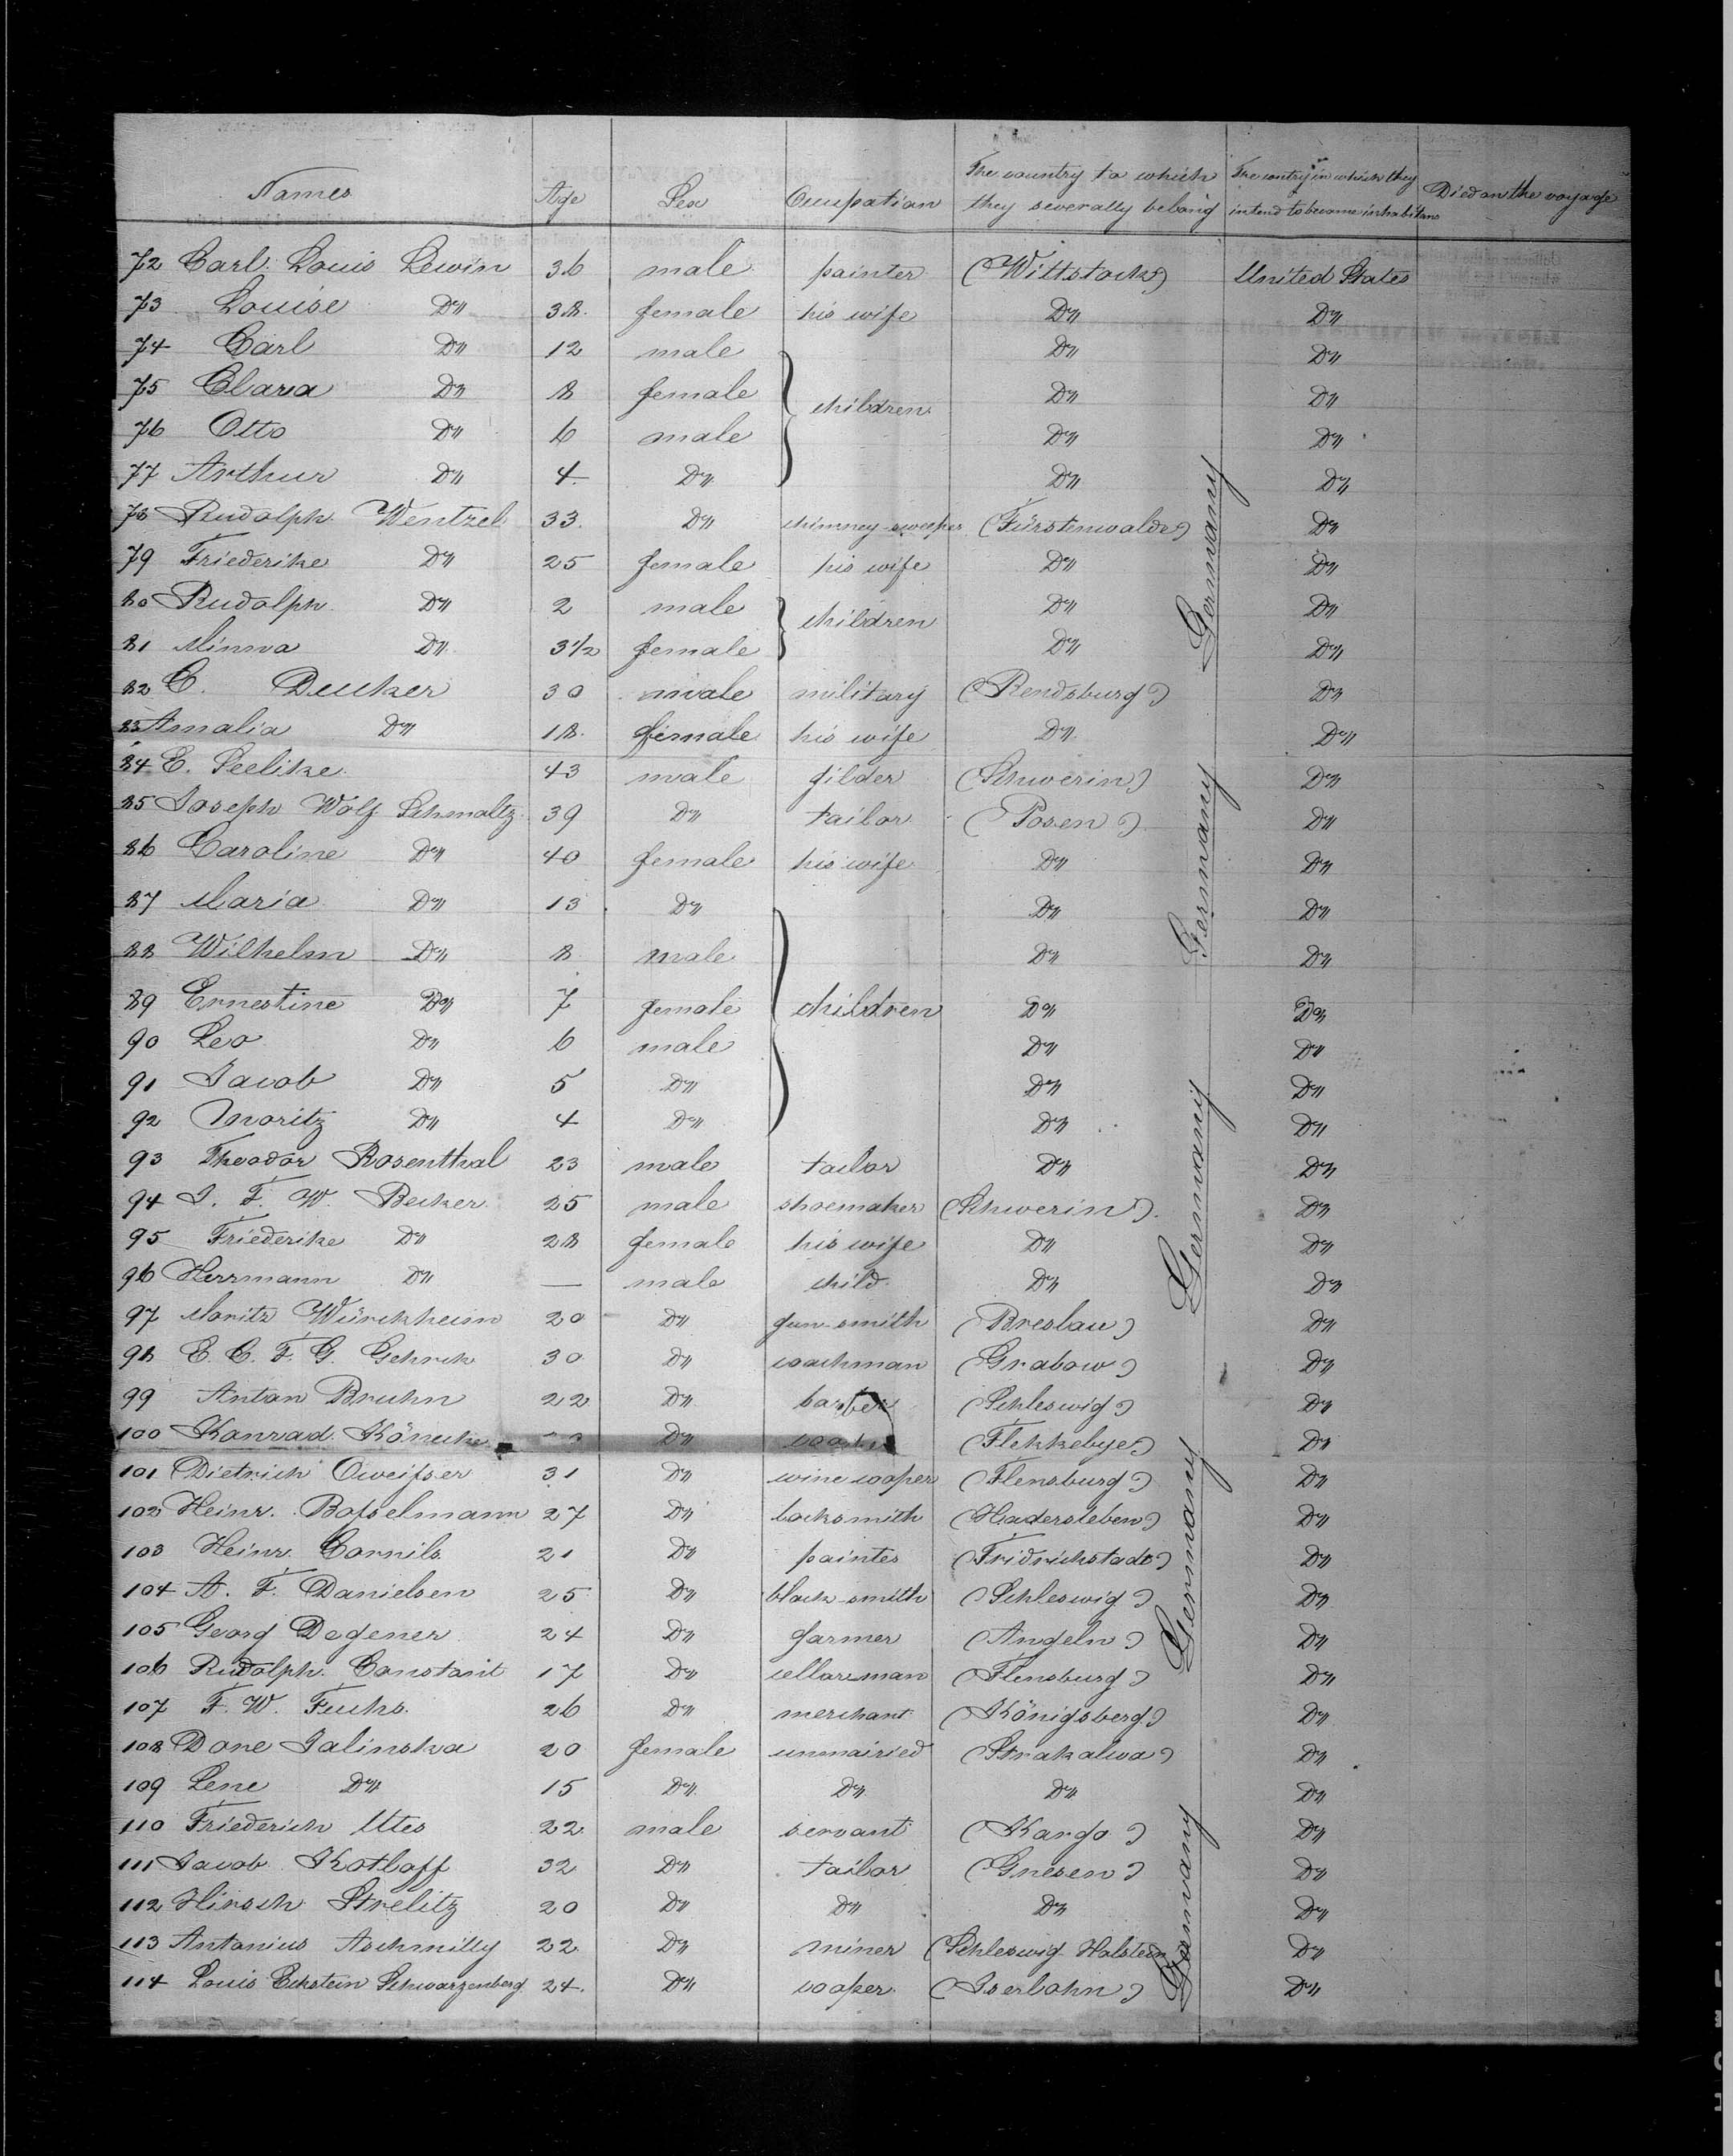 Names Age Sex Occupation The country to which they severally belong The contry in which they intend to become inhabitans Died on the voyage
72 Carl Louis Lewin 36 male painter (Wittstock) United States
73 Louise Do 38 female his wife Do Do
74 Carl Do 12 male Do Do
75 Clara Do 8 female children Do Do
76 Otto Do 6 male Do Do
77 Arthur Do 4 Do Do Do
78 Rudolph Wentzel 33 Do chimney-sweeper (Fürstenwalde) Do
79 Friederike Do 25 female his wife Do Do
80 Rudolph Do 2 male children Do Do
81 Minna Do 3½ female Do Do
Germany
82 C. Deuker 30 male military (Rendsburg) Do
83 Amalia Do 18 female his wife Do Do
84 E. Seelike 43 male gilder (Schwerin) Do
85 Joseph Wolf Schmaltz 39 Do tailor (Posen) Do
86 Caroline Do 40 female his wife Do Do
87 Maria Do 13 Do Do Do
88 Wilhelm Do 8 male Do Do
Germany
89 Ernestine Do 7 female children Do Do
90 Leo Do 6 male Do Do
91 Jacob Do 5 Do Do Do
92 Moritz Do 4 Do Do Do
93 Theodor Rosenthal 23 male tailor Do Do
94 J. F. W. Becker 25 male shoemaker (Schwerin) Do
95 Friederike Do 28 female his wife Do Do
96 Herrmann Do — male child Do Do
Germany
97 Moritz Würckheim 20 Do gun-smith (Breslau) Do
98 E. C. F. G. Gehrck 30 Do coachman (Grabow) Do
99 Anton Bruhn 22 Do barber (Schleswig) Do
100 Konrad Könecke Do (Flekkebye) Do
101 Dietrich Oweifser 31 Do wine cooper (Flensburg) Do
102 Heinr. Bofselmann 27 Do locksmith (Hadersleben) Do
103 Heinr. Cornils 21 Do painter (Fridrichstadt) Do
104 A. F. Danielsen 25 Do black-smith (Schleswig) Do
105 Georg Degener 24 Do farmer (Angeln) Do
Germany
106 Rudolph Constant 17 Do cellar-man (Flensburg) Do
107 F. W. Fuchs 26 Do merchant (Königsberg) Do
108 Dore Jalinska 20 female unmairied (Strakalwa) Do
109 Lene Do 15 Do Do Do Do
110 Friederich Utes 22 male servant (Kargo) Do
111 Jacob Kotloff 32 Do tailor (Gnesen) Do
112 Hirsch Strelitz 20 Do Do Do Do
113 Antonius Aschmilly 22 Do miner (Schleswig Holstein) Do
114 Louis Eckstein Schwarzenberg 24 Do cooper (Iserlohn) Do
Germany